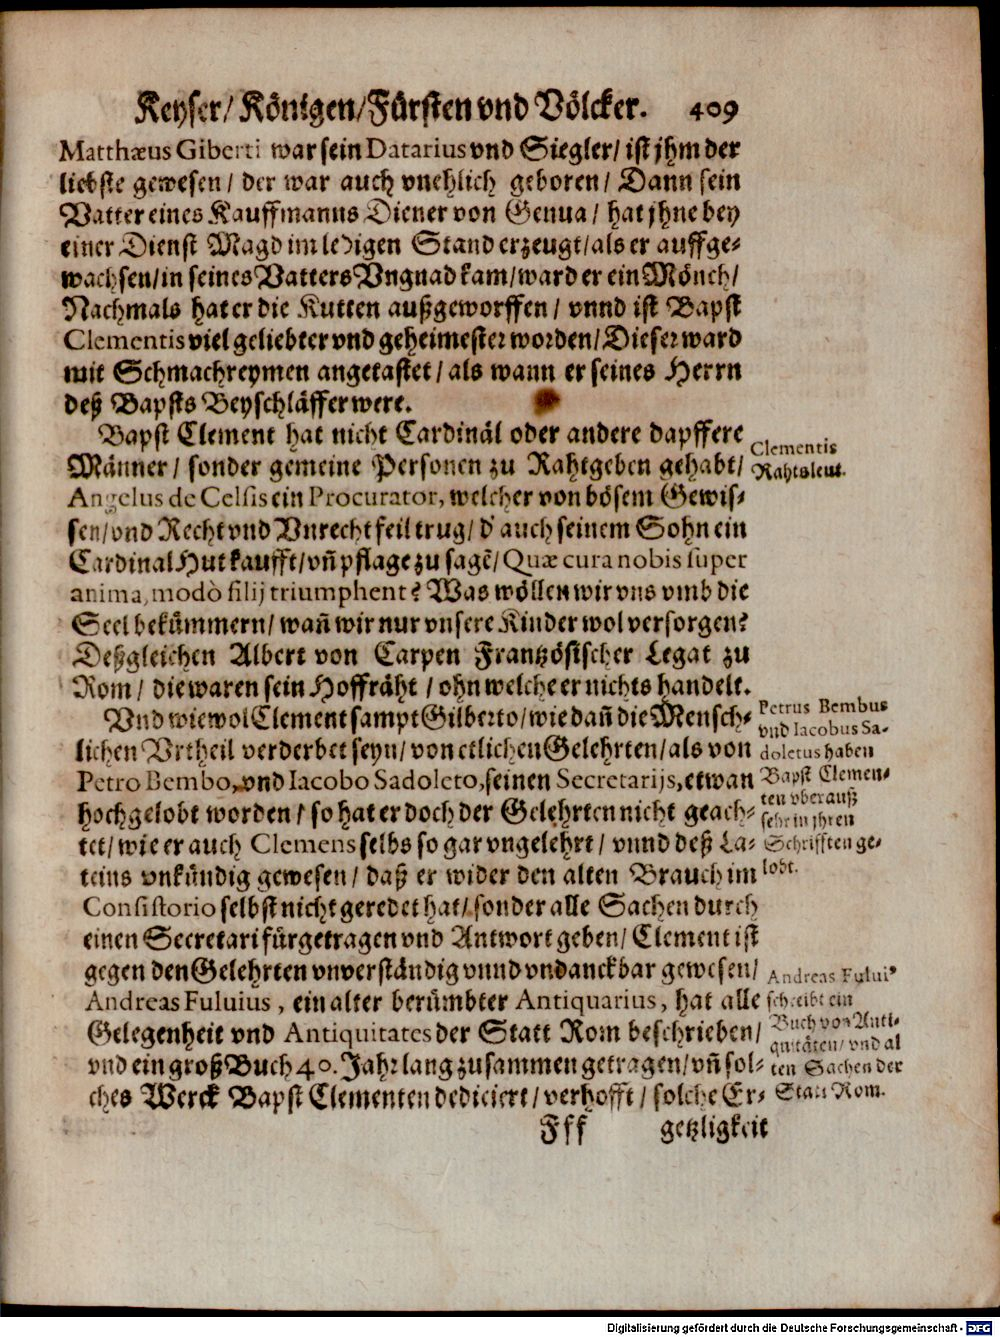 Keyser/ Königen/ Fürsten vnd Völcker. 409
Matthæus Giberti war sein Datarius vnd Siegler/ ist jhm der
liebste gewesen/ der war auch vnehlich geboren/ Dann sein
Vatter eines Kauffmanns Diener von Genua/ hat jhne bey
einer Dienst Magd im ledigen Stand erzeugt/ als er auffge-
wachsen/ in seines Vatters Vngnad kam/ ward er ein Mönch/
Nachmals hat er die Kutten außgeworffen/ vnnd ist Bapst
Clementis viel geliebter vnd geheimester worden/ Dieser ward
mit Schmachreymen angetastet/ als wann er seines Herrn
deß Bapsts Beyschläffer were.
Bapst Clement hat nicht Cardinäl oder andere dapffere
Männer/ sonder gemeine Personen zu Rahtgeben gehabt/
Angelus de Celsis ein Procurator, welcher von bösem Gewis-
sen/ vnd Recht vnd Vnrecht feil trug/ d' auch seinem Sohn ein
Cardinal Hut kaufft/ vñ pflage zu sagẽ/ Quæ cura nobis super
anima, modò filij triumphent? Was wöllen wir vns vmb die
Seel bekümmern/ wañ wir nur vnsere Kinder wol versorgen?
Deßgleichen Albert von Carpen Frantzösischer Legat zu
Rom/ die waren sein Hoffräht/ ohn welche er nichts handelt.
Clementis
Rahtsleut.
Vnd wiewol Clement sampt Gilberto/ wie dañ die Mensch-
lichen Vrtheil verderbet seyn/ von etlichen Gelehrten/ als von
Petro Bembo, vnd Iacobo Sadoleto, seinen Secretarijs, etwan
hochgelobt worden/ so hat er doch der Gelehrten nicht geach-
tet/ wie er auch Clemens selbs so gar vngelehrt/ vnnd deß La-
teins vnkündig gewesen/ daß er wider den alten Brauch im
Consistorio selbst nicht geredet hat/ sonder alle Sachen durch
einen Secretari fürgetragen vnd Antwort geben/ Clement ist
gegen den Gelehrten vnverständig vnnd vndanckbar gewesen/
Andreas Fuluius, ein alter berümbter Antiquarius, hat alle
Gelegenheit vnd Antiquitates der Statt Rom beschrieben/
vnd ein groß Buch 40. Jahr lang zusammen getragen/ vñ sol-
ches Werck Bapst Clementen dediciert/ verhofft/ solche Er-
Petrus Bembus
vnd Iacobus Sa-
doletus haben
Bapst Clemen-
ten vberauß
sehr in jhren
Schrifften ge-
lobt.
Andreas Fului'
schreibt ein
Buch von Anti-
quitäten/ vnd al
ten Sachen der
Statt Rom.
Fff getzligkeit
Digitalisierung gefördert durch die Deutsche Forschungsgemeinschaft - DFG